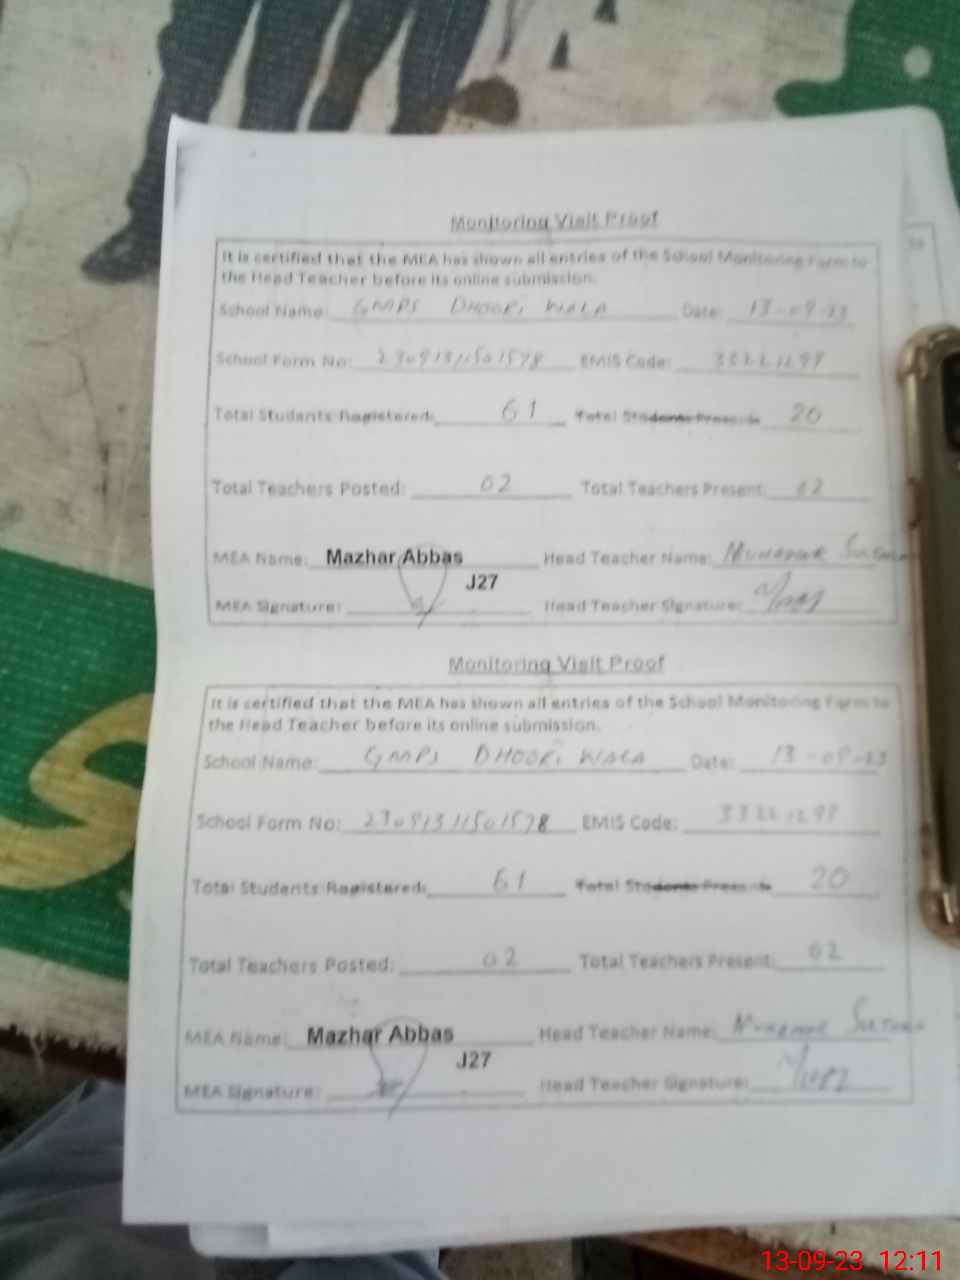 Monitoring Visit Proof
It is certified that the MEA has shown all entries of the School Monitoring Form to
the Head Teacher before its online submission.
School Name: GMPS DHOORI WALA Date: 13-09-23
School Form No: 23091311501578 EMIS Code:
Total Students Registered: 61 Total Students Present: 20
Total Teachers Posted: 02 Total Teachers Present: 02
MEA Name: Mazhar Abbas Head Teacher Name: Munawar Sultana
J27
MEA Signature: Head Teacher Signature:
Monitoring Visit Proof
It is certified that the MEA has shown all entries of the School Monitoring Form to
the Head Teacher before its online submission.
School Name: GMPS DHOORI WALA Date: 13-09-23
School Form No: 23091311501578 EMIS Code:
Total Students Registered: 61 Total Students Present: 20
Total Teachers Posted: 02 Total Teachers Present: 02
MEA Name: Mazhar Abbas Head Teacher Name: Munawar Sultana
J27
MEA Signature: Head Teacher Signature:
13-09-23 12:11